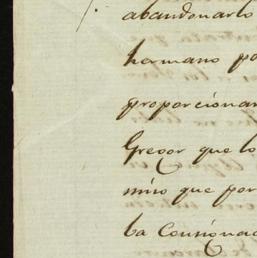 abandonarlo
hermano po
proporcionar
Gregor que lo
miro que por
ba Consignac